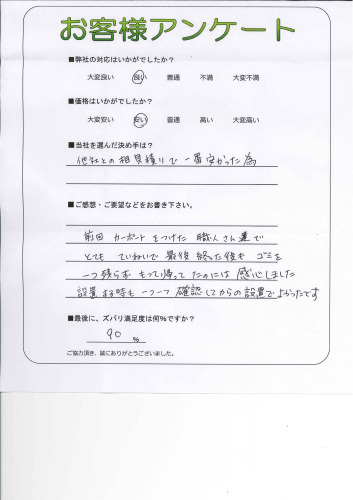 お客様アンケート
■弊社の対応はいかがでしたか?
大変良い 良い 普通 不満 大変不満
■価格はいかがでしたか?
大変安い 安い 普通 高い 大変高い
■当社を選んだ決め手は?
他社との相見積りで一番安かった為
■ご感想・ご要望などをお書き下さい。
前回 カーポートをつけた 職人さん達で
とても ていねいで 最後 終った後も ゴミを
一つ残らず もって帰ってたのには 感心しました
設置する時も 一つ一つ 確認してからの設置でよかったです
■最後に、ズバリ満足度は何%ですか?
90 %
ご協力頂き、誠にありがとうございました。